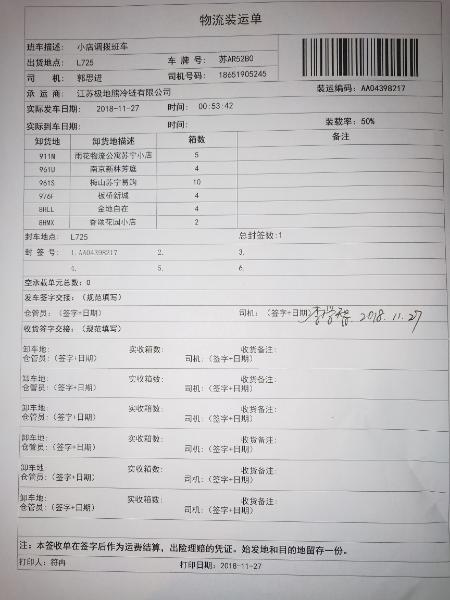 物流装运单
班车描述： 小店调拨班车
出货地点： L725 车 牌 号： 苏AR52B0
司 机： 郭思进 司机号码： 18651905245
承 运 商： 江苏极地熊冷链有限公司 装运编码：AA04398217
实际发车日期： 2018-11-27 时间： 00:53:42
实际到车日期： 时间： 装载率：50%
卸货地 卸货地描述 箱数 备注
911N 雨花物流公寓苏宁小店 5
961U 南京新林芳庭 4
961S 梅山苏宁易购 10
976F 板桥新城 4
8HLL 金地自在 4
8HMX 香颂花园小店 2
封车地点： L725 总封签数：1
封 签 号： 1.AA04398217 2. 3.
4. 5. 6.
空承载单元总数：0
发车签字交接：（规范填写）
仓管员：（签字+日期） 司机：（签字+日期） 2018.11.27
收货签字交接：（规范填写）
卸车地： 实收箱数： 收货备注：
仓管员：（签字+日期） 司机：（签字+日期）
卸车地： 实收箱数： 收货备注：
仓管员：（签字+日期） 司机：（签字+日期）
卸车地： 实收箱数： 收货备注：
仓管员：（签字+日期） 司机：（签字+日期）
卸车地： 实收箱数： 收货备注：
仓管员：（签字+日期） 司机：（签字+日期）
卸车地 实收箱数： 收货备注：
仓管员：（签字+日期） 司机：（签字+日期）
卸车地： 实收箱数： 收货备注：
仓管员：（签字+日期） 司机：（签字+日期）
注：本签收单在签字后作为运费结算，出险理赔的凭证。始发地和目的地留存一份。
打印人：符冉 打印日期：2018-11-27